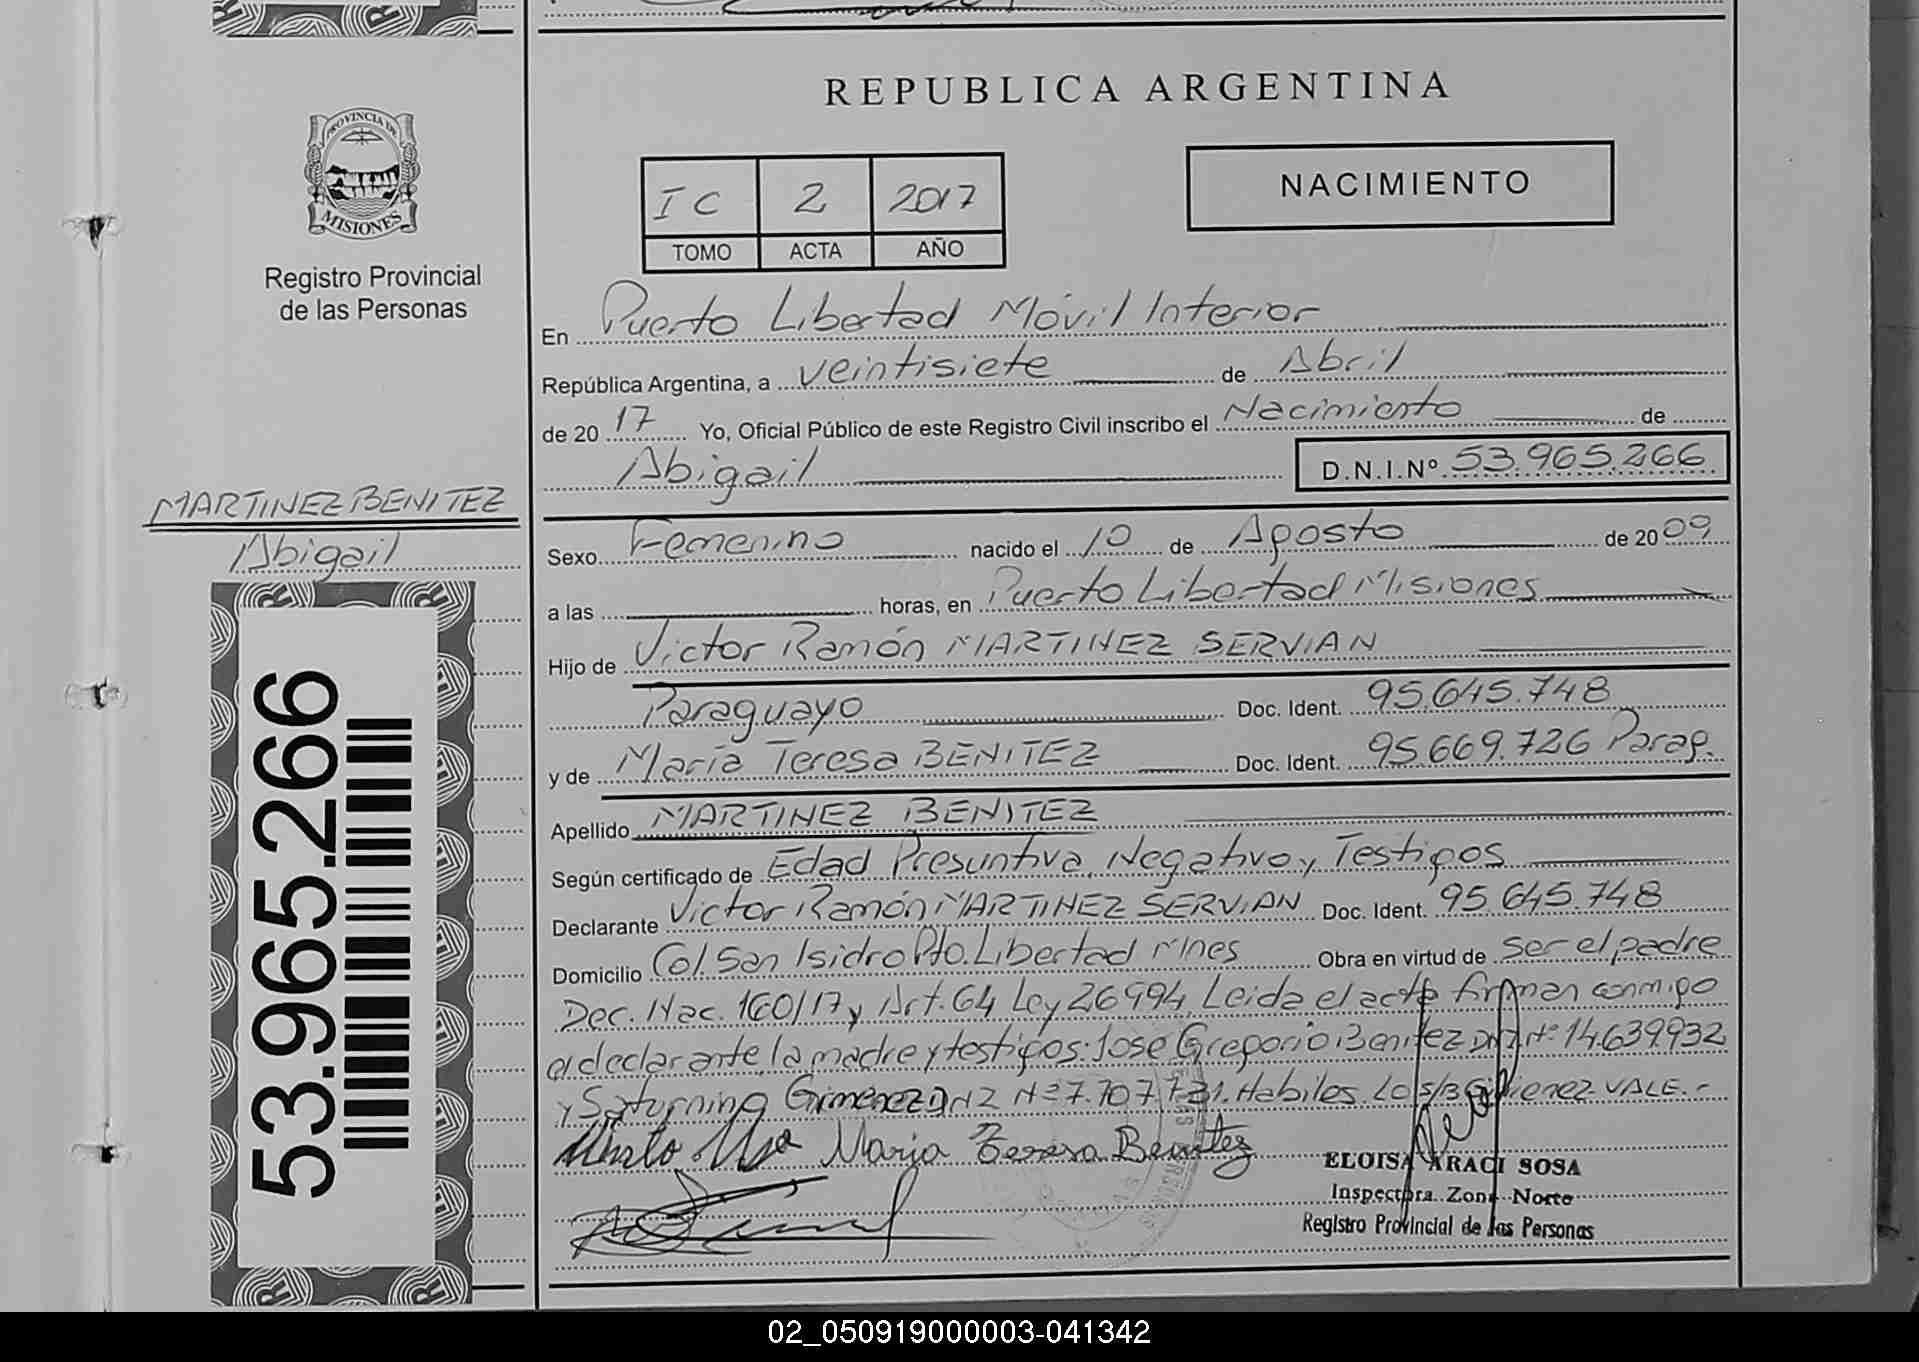 REPUBLICA ARGENTINA
PROVINCIA DE
MISIONES
Registro Provincial
de las Personas
I C 2 2017
TOMO ACTA AÑO
NACIMIENTO
En Puerto Libertad Móvil Interior
República Argentina, a veintisiete de Abril
de 20 17 Yo, Oficial Público de este Registro Civil inscribo el Nacimiento de
Abigail D.N.I.Nº 53.965.266
MARTINEZ BENITEZ
Abigail
53.965.266
Sexo Femenino nacido el 10 de Agosto de 20 09
a las horas, en Puerto Libertad Misiones
Hijo de Victor Ramón MARTINEZ SERVIAN
Paraguayo Doc. Ident. 95.645.748
y de María Teresa BENITEZ Doc. Ident. 95.669.726 Parag.
Apellido MARTINEZ BENITEZ
Según certificado de Edad Presuntiva, Negativo y Testigos
Declarante Victor Ramón MARTINEZ SERVIAN Doc. Ident. 95.645.748
Domicilio Col. San Isidro Pto. Libertad Mnes Obra en virtud de ser el padre
Dec. Nac. 160/17 y Art. 64 Ley 26994, Leida el acta firman conmigo
el declarante, la madre y testigos: Jose Gregorio Benitez DNI Nº 14.639.932
y Saturnino Gimenez DNI Nº 7.707.731. Habiles. Lo s/B Gimenez VALE.-
Maria Teresa Benitez
ELOISA ARACI SOSA
Inspectora Zona Norte
Registro Provincial de las Personas
02_050919000003-041342